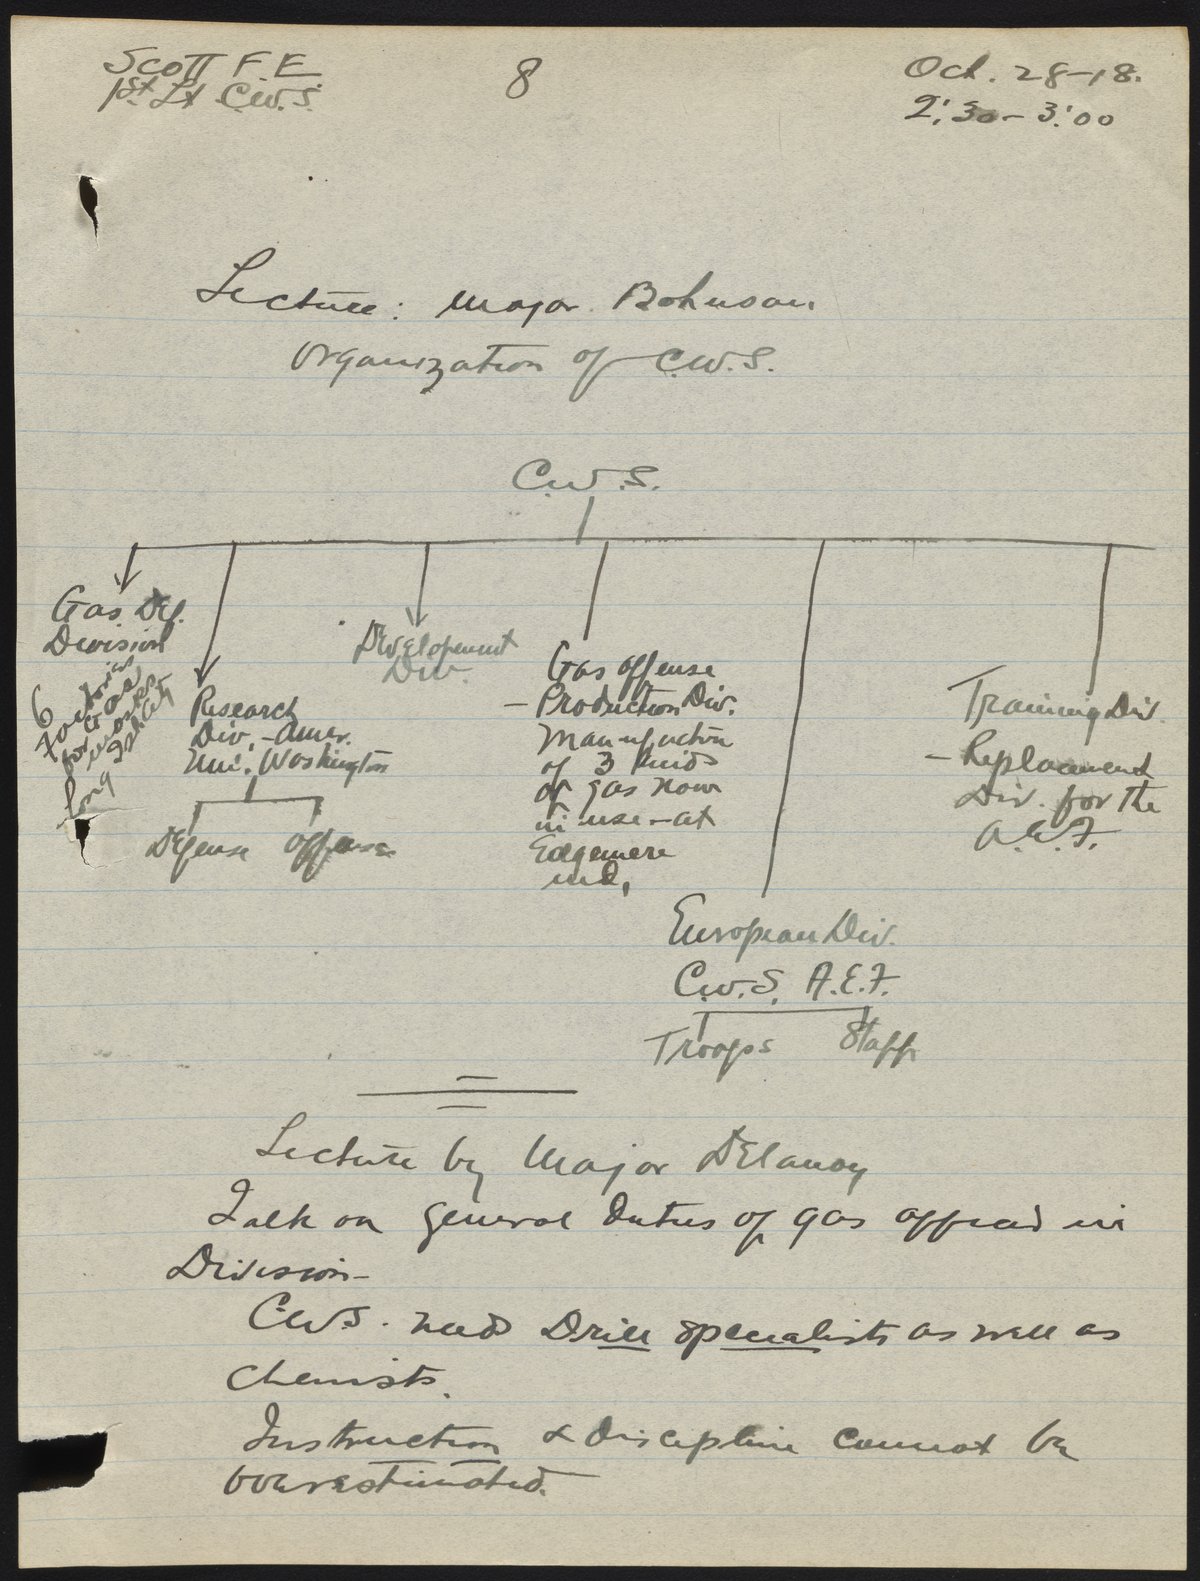 Scott F.E.
1st Lt C.W.S.
8
Oct. 28-18.
2:30-3:00
Lecture: Major Bohnson
Organization of C.W.S.
C.W.S.
Gas Def.
Division
6
Factories
for Gas
masks
Long Island City
Research
Div. - Amer.
Uni. Washington
Defense Offense
Development
Div.
Gas offense
- Production Div.
Manufactur
of 3 kinds
of gas now
in use - at
Edgemere
Md,
European Div.
C.W.S. A.E.F.
Troops Staff
Training Div.
- Replacement
Div. for the
A.E.F.
Lecture by Major Delanoy
Talk on general duties of gas officer in
Division-
C.W.S. needs Drill specialists as well as
chemists.
Instruction & discipline cannot be
overestimated.